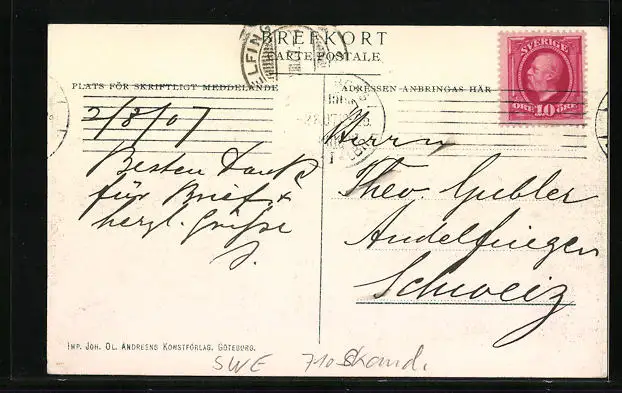 BREFKORT
CARTE POSTALE
SVERIGE
ÖRE 10 ÖRE
PLATS FÖR SKRIFTLIGT MEDDELANDE
ADRESSEN ANBRINGAS HÄR
2/8/07
Besten Dank
für Brief &
herzl. Grüße
J.
Herrn
Theo. Gubler
Andelfingen
Schweiz
IMP. JOH. OL. ANDREENS KONSTFÖRLAG, GÖTEBURG.
SWE 710 Skand.